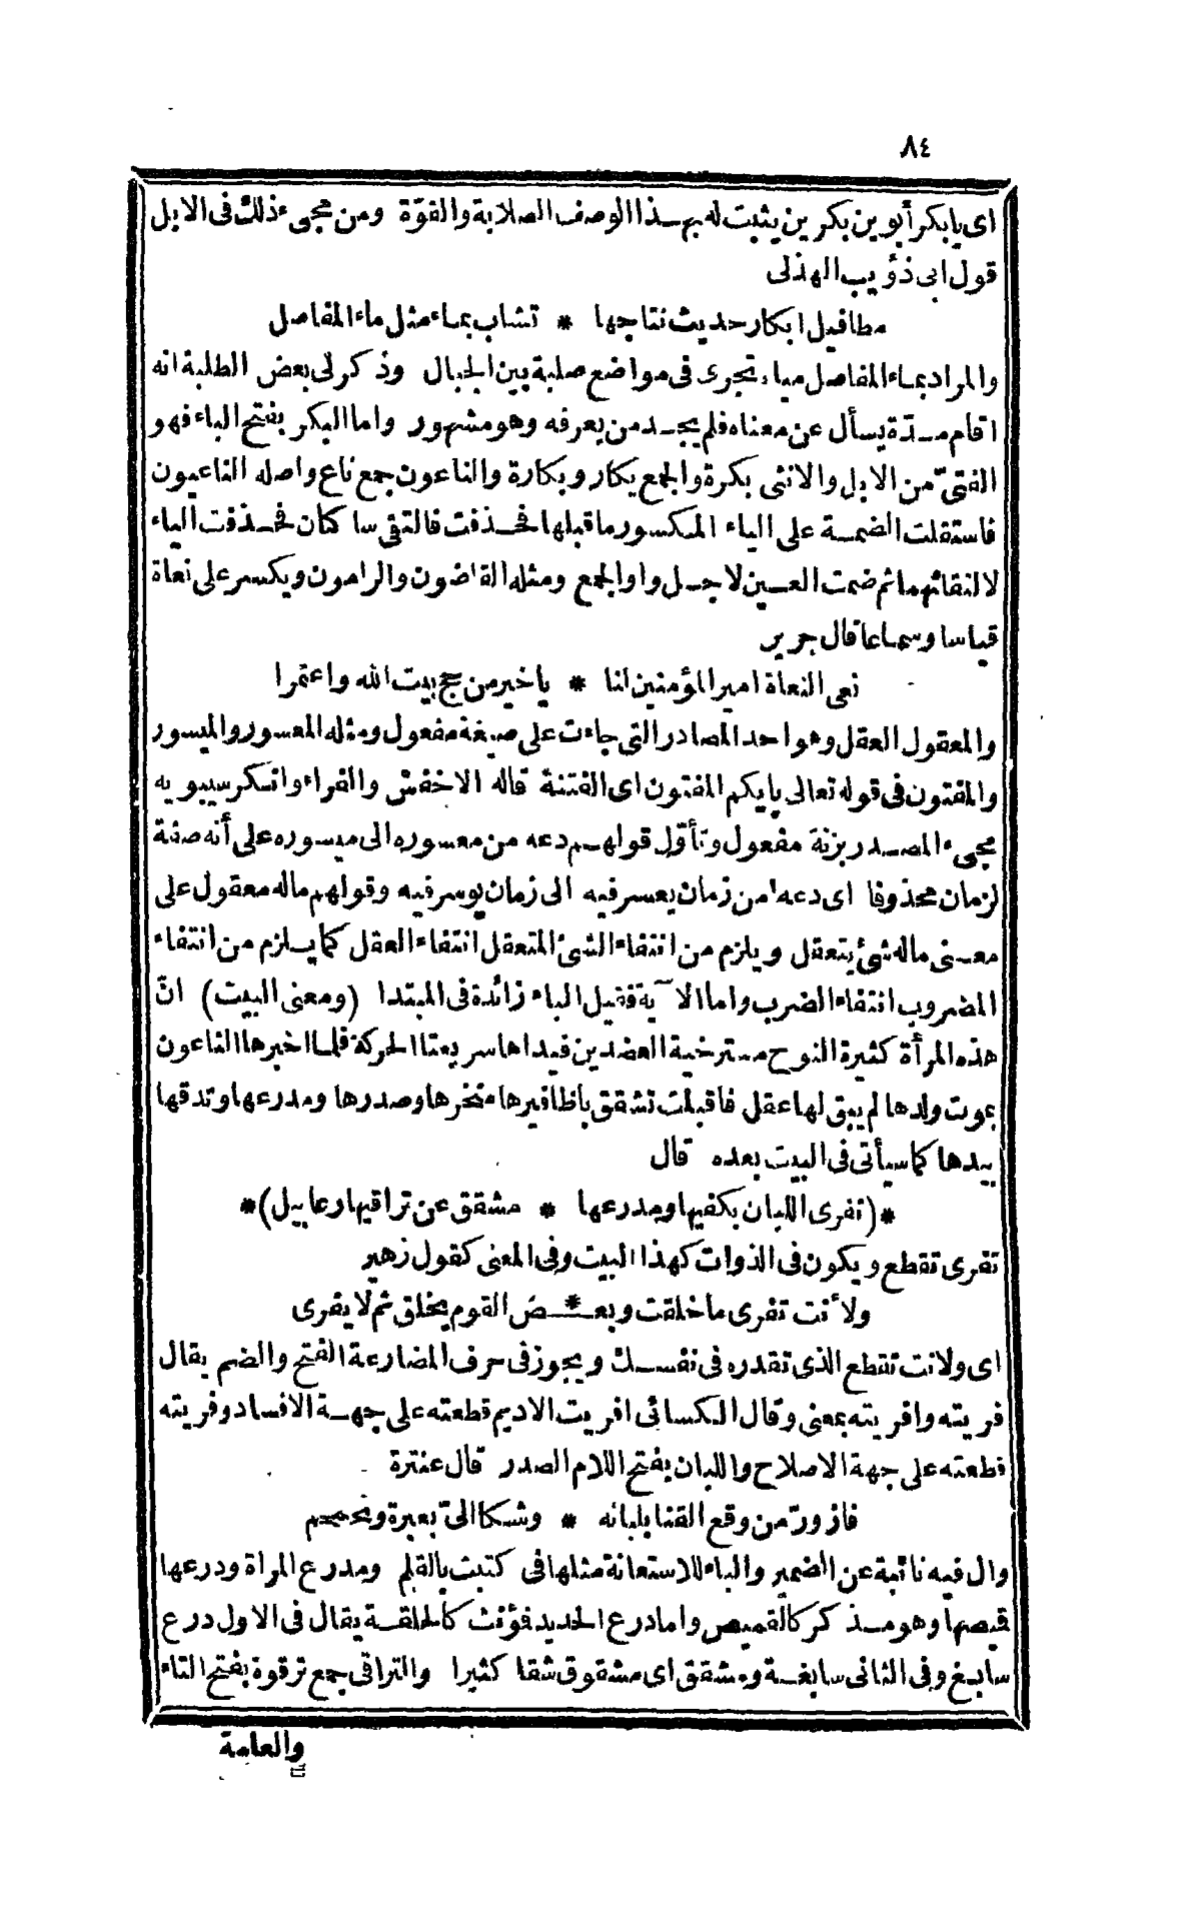 ٨٤
اى يا بكر أبوين بكرين يثبت له بهذا الوصف الصلابة والقوّة ومن مجىء ذلك فى الابل
قول ابى ذؤيب الهذلى
مطافيل ابكار حديث نتاجها * تشاب بماء مثل ماء المفاصل
والمراد بماء المفاصل مياه تجرى فى مواضع صلبة بين الجبال وذكر لى بعض الطلبة انه
اقام مدّة يسأل عن معناه فلم يجد من يعرفه وهو مشهور واما البكر بفتح الباء فهو
الفتىّ من الابل والانثى بكرة والجمع بكار وبكارة والناعون جمع ناع واصله الناعيون
فاستقلت الضمة على الياء المكسور ما قبلها فحذفت فالتقى ساكنان فحذفت الياء
لالتقائهما ثم ضمت العين لاجل واو الجمع ومثله القاضون والرامون ويكسر على نعاة
قياسا وسماعا قال جرير
نعى النعاة امير المؤمنين لنا * يا خير من حج بيت الله واعتمرا
والمعقول العقل وهو احد المصادر التى جاءت على صيغة مفعول ومثله المعسور والميسور
والمفتون فى قوله تعالى بايكم المفتون اى الفتنة قاله الاخفش والفراء وانكر سيبويه
مجىء المصدر بزنة مفعول وتأوّل قولهم دعه من معسوره الى ميسوره على أنه صفة
لزمان محذوفا اى دعه من زمان يعسر فيه الى زمان يوسر فيه وقولهم ماله معقول على
معنى ماله شئ يتعقل ويلزم من انتفاء الشئ المتعقل انتفاء العقل كما يلزم من انتفاء
المضروب انتفاء الضرب واما الآية فقيل الباء زائدة فى المبتدا (ومعنى البيت) انّ
هذه المرأة كثيرة النوح مسترخية العضدين فيداها سريعتا الحركة فلما اخبرها الناعون
بموت ولدها لم يبق لها عقل فاقبلت تشقق باظافيرها منخرها وصدرها ومدرعها وتدقها
بيدها كما سيأتى فى البيت بعده قال
*(تفرى اللبان بكفيها ومدرعها * مشقق عن تراقيها رعابيل)*
تفرى تقطع ويكون فى الذوات كهذا البيت وفى المعنى كقول زهير
ولأنت تفرى ما خلقت وبعـ*ـض القوم يخلق ثم لا يفرى
اى ولانت تقطع الذى تقدره فى نفسك ويجوز فى حرف المضارعة الفتح والضم يقال
فريته وافريته بمعنى وقال الكسائى افريت الاديم قطعته على جهة الافساد وفريته
قطعته على جهة الاصلاح واللبان بفتح اللام الصدر قال عنترة
فازورّ من وقع القنا بلبانه * وشكا الىّ بعبرة وتحمحم
وال فيه نائبة عن الضمير والباء للاستعانة مثلها فى كتبت بالقلم ومدرع المراة ودرعها
قميصها وهو مذكر كالقميص واما درع الحديد فؤنث كالحلقة يقال فى الاول درع
سابغ وفى الثانى سابغة ومشقق اى مشقوق شقا كثيرا والتراقى جمع ترقوة بفتح التاء
والعامة